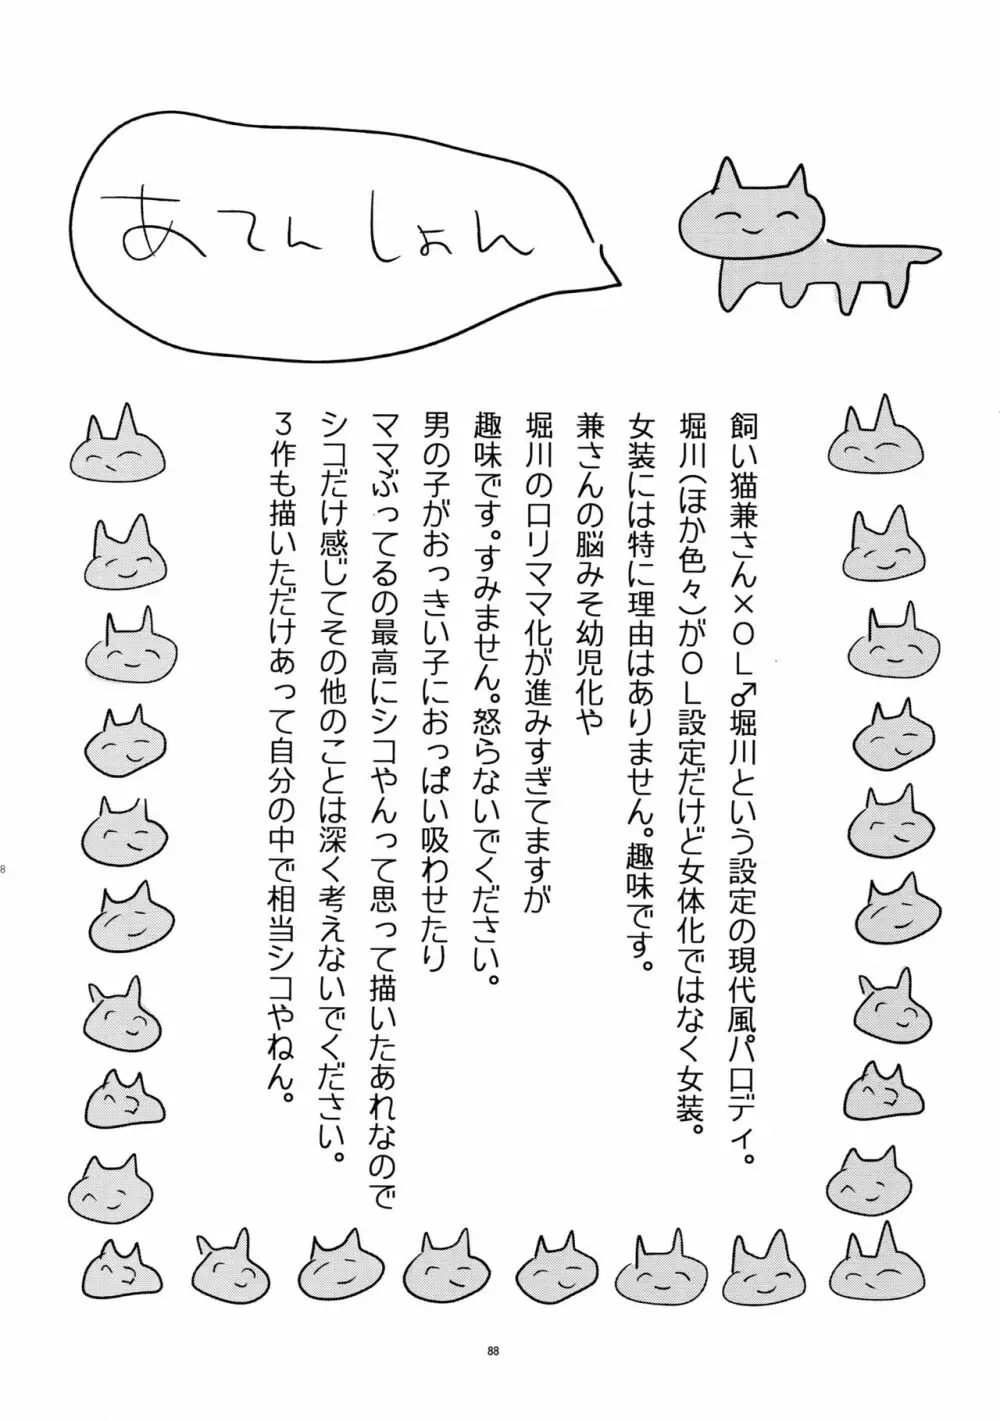 あてんしょん
飼い猫兼さん×OL♂堀川という設定の現代風パロディ。
堀川(ほか色々)がOL設定だけど女体化ではなく女装。
女装には特に理由はありません。趣味です。
兼さんの脳みそ幼児化や
堀川のロリママ化が進みすぎてますが
趣味です。すみません。怒らないでください。
男の子がおっきい子におっぱい吸わせたり
ママぶってるの最高にシコやんって思って描いたあれなので
シコだけ感じてその他のことは深く考えないでください。
3作も描いただけあって自分の中で相当シコやねん。
88
8